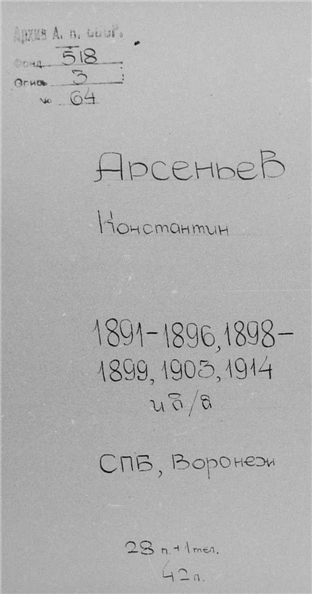 Архив А. Н. СССР.
Фонд 518
Опись 3
№ 64
Арсеньев
Константин
1891-1896, 1898-
1899, 1903, 1914
и б/д
СПБ, Воронеж
28 п. + 1 тел.
42 л.